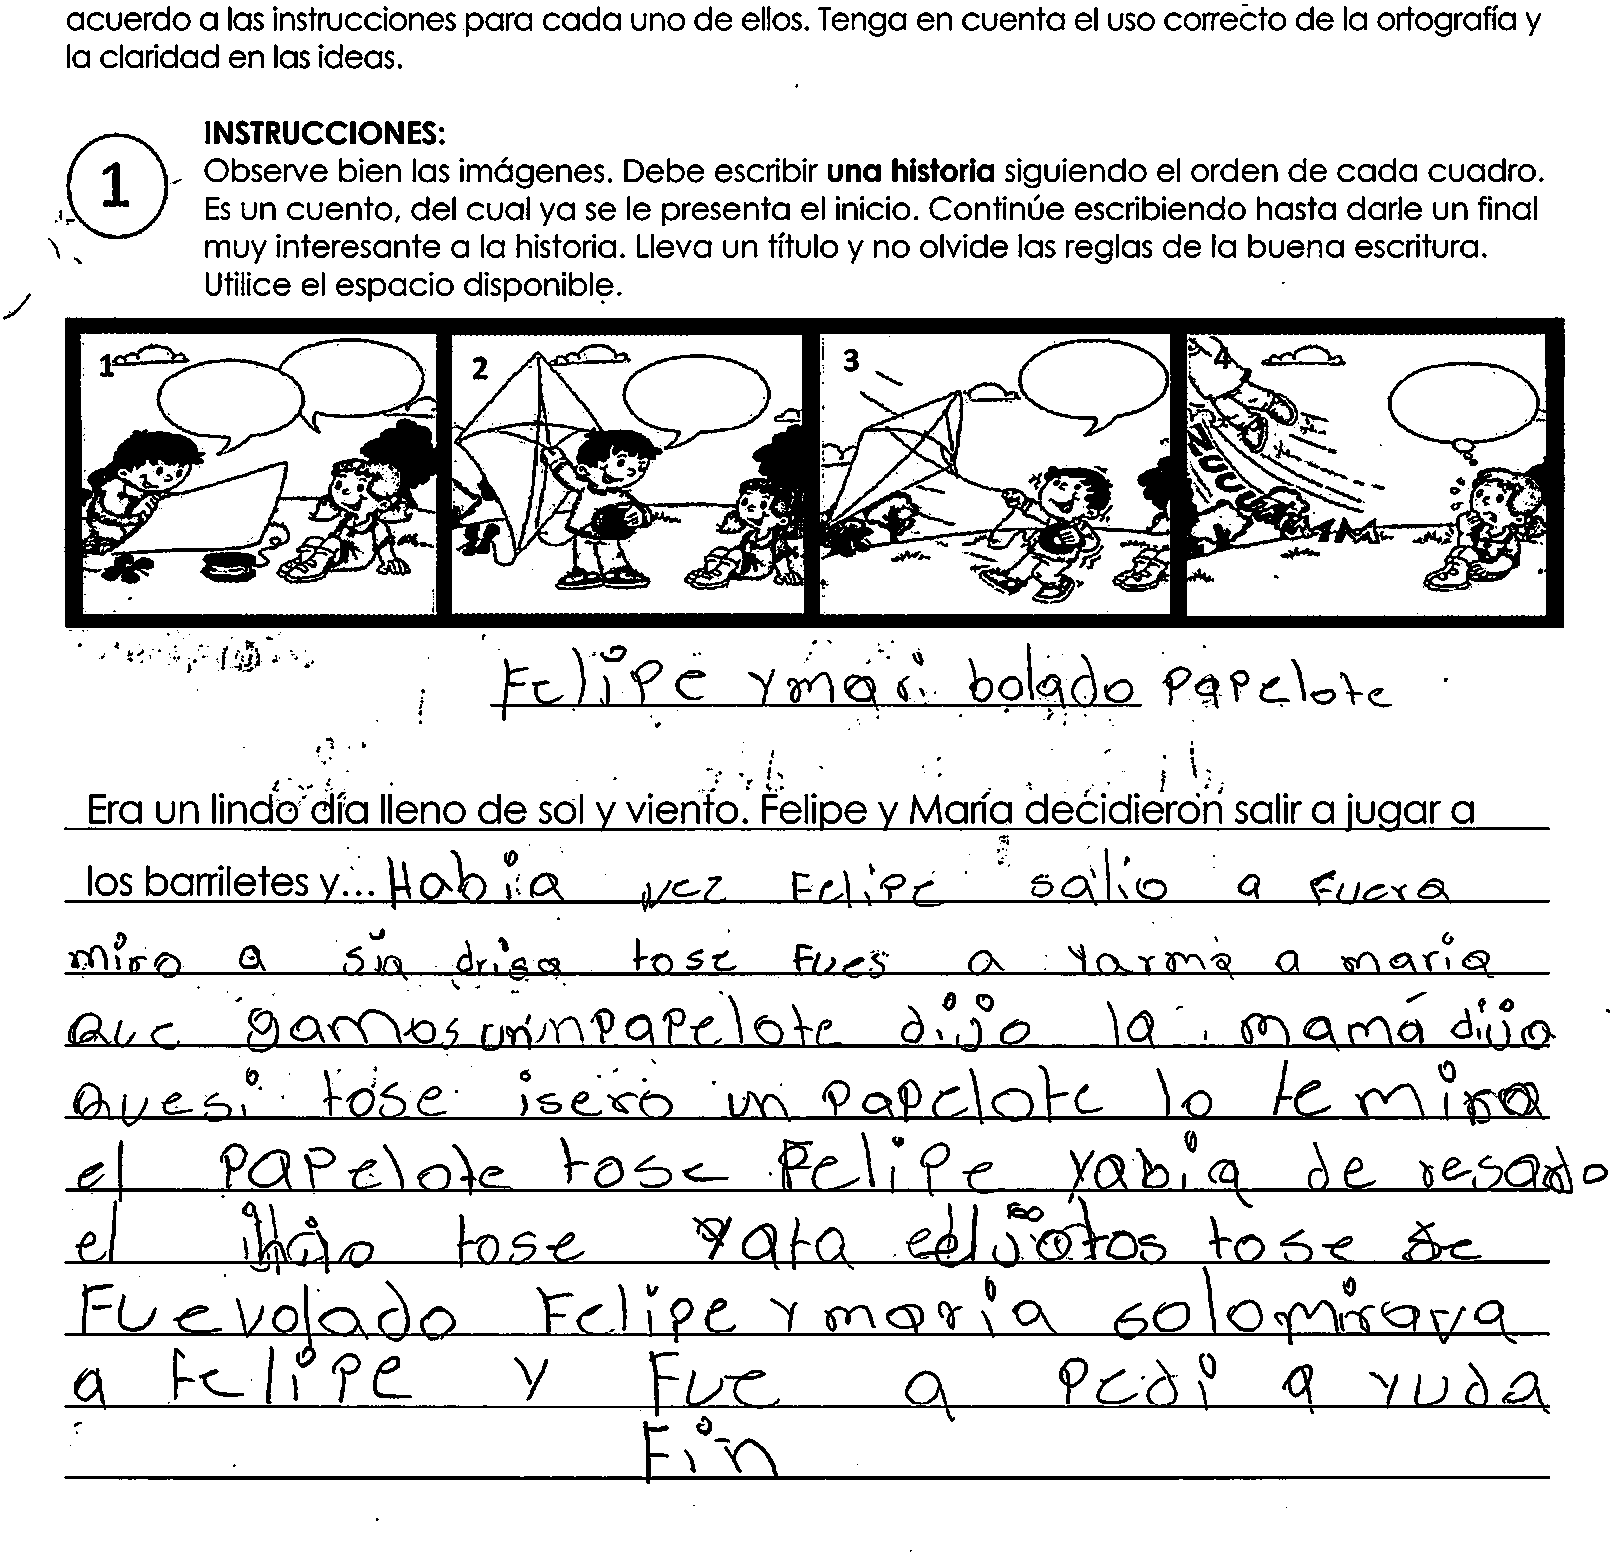 acuerdo a las instrucciones para cada uno de ellos. Tenga en cuenta el uso correcto de la ortografía y
la claridad en las ideas.
INSTRUCCIONES:
1
Observe bien las imágenes. Debe escribir una historia siguiendo el orden de cada cuadro.
Es un cuento, del cual ya se le presenta el inicio. Continúe escribiendo hasta darle un final
muy interesante a la historia. Lleva un título y no olvide las reglas de la buena escritura.
Utilice el espacio disponible.
1 2 3 4
ZUUUUMMM
Felipe y mari bolado papelote
Era un lindo día lleno de sol y viento. Felipe y María decidieron salir a jugar a
los barriletes y... Habia vez Felipe salio a Fuera
miro a sia drisa tose Fues a yarma a maria
que gamos un papelote dijo la mamá dijo
quesi tose isero un papelote lo te mina
el papelote tose Felipe yabia de resado
el tose yata tose se
Fue volado Felipe y maria solo mirava
a Felipe y Fue a pedi a yuda
Fin